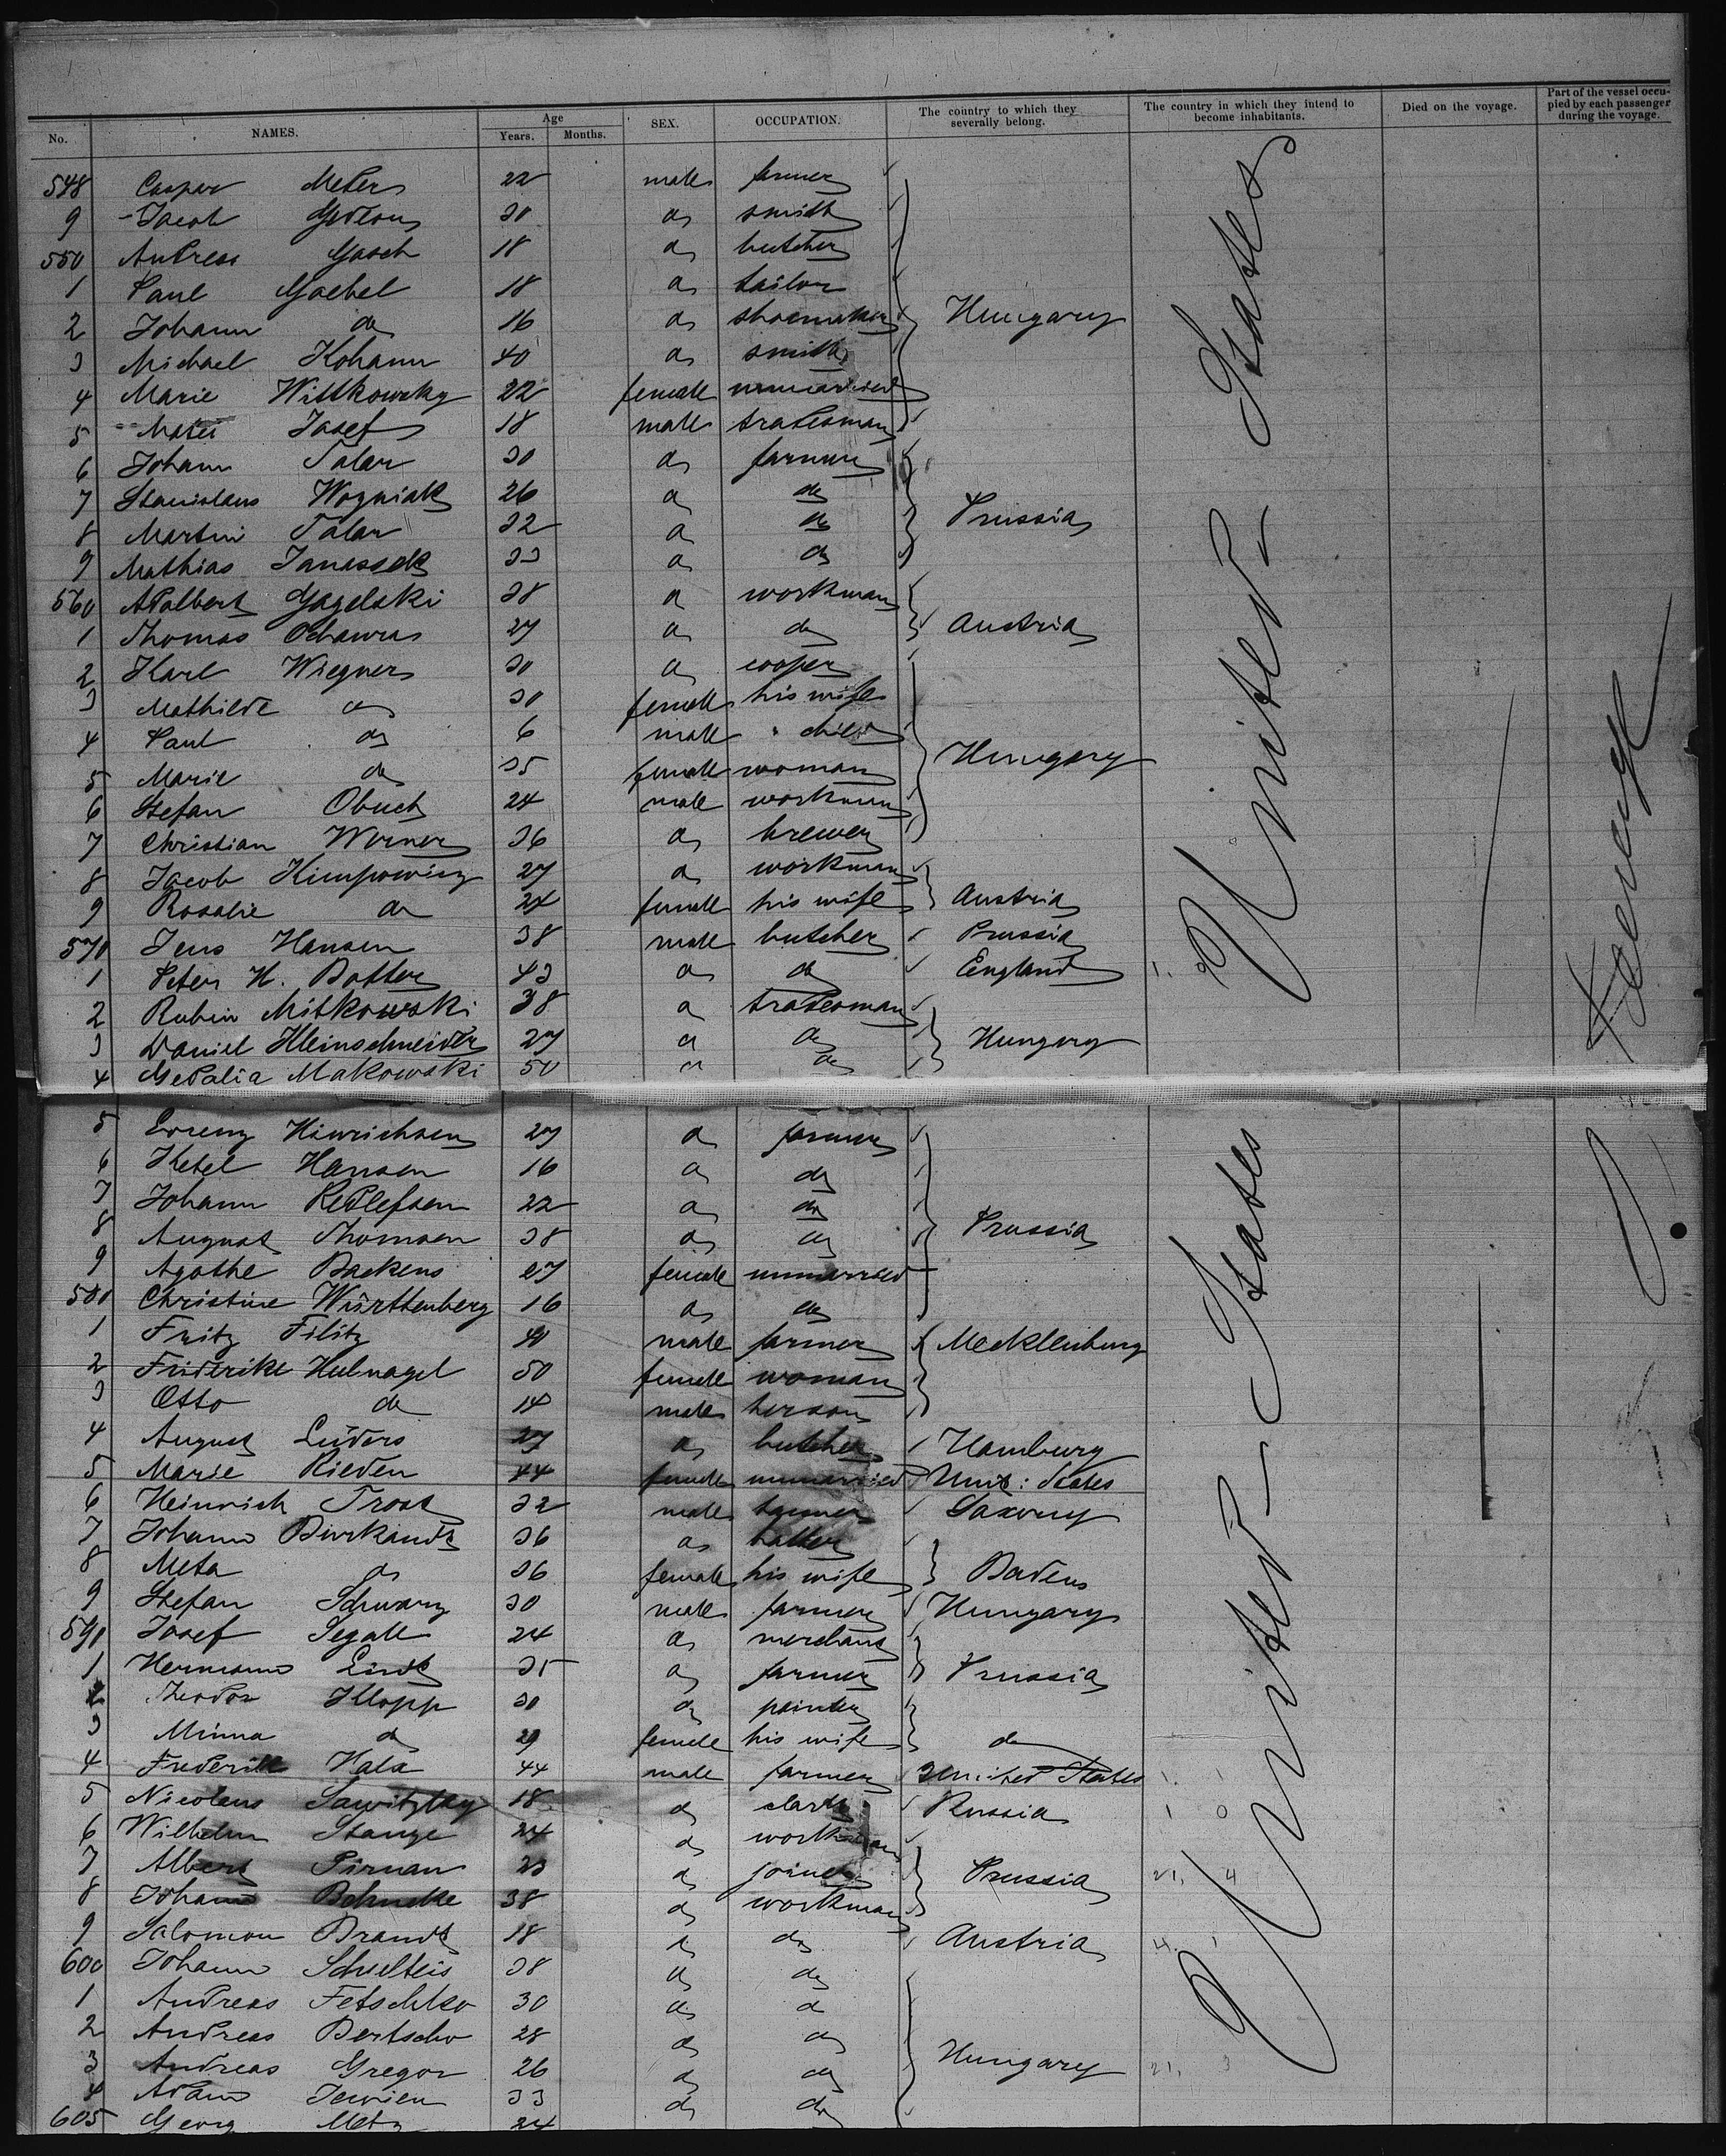 No. NAMES. Age Years. Months. SEX. OCCUPATION. The country to which they severally belong. The country in which they intend to become inhabitants. Died on the voyage. Part of the vessel occupied by each passenger during the voyage.
548 Casper 22 male farmer
9 Jacob 30 do smith
550 Andreas Gasch 18 do butcher
1 Paul Goebel 18 do tailor
2 Johann do 16 do shoemaker Hungary
3 Michael Kohann 40 do smith
4 Marie Wittkowsky 22 female unmarried
5 Josef 18 male tradesman
6 Johann Talar 30 do farmer
7 Stanislaus Wozniak 26 do do Prussia
8 Martin Talar 32 do do
9 Mathias Janassek 33 do do
560 Adalbert Gagelski 38 do workman
1 Thomas 27 do do Austria
2 Karl Wiegner 30 do cooper
3 Mathilde do 30 female his wife
4 Paul do 6 male " child
5 Marie do 35 female woman Hungary
6 Stefan Obuch 24 male workman
7 Christian Werner 36 do brewer
8 Jacob 27 do workman
9 Rosalie do 24 female his wife Austria
570 Jens Hansen 38 male butcher Prussia
1 Peter H. Botter 43 do do England
2 Rubin Mitkowski 38 do tradesman
3 Daniel Kleinschneider 27 do do Hungary
4 Makowski 50 do do
United States
5 Hinrichsen 27 do farmer
6 Ketel Hansen 16 do do
7 Johann Detlefsen 22 do do
8 August Thomsen 38 do do Prussia
9 Agathe Backens 27 female unmarried
580 Christine Württenberg 16 do do
1 Fritz Filitz male farmer Mecklenburg
2 Friderike Hulnagel 50 female woman
3 Otto do 14 male her son
4 August Lüders 27 do butcher Hamburg
5 Marie Rieden 44 female unmarried Unit: States
6 Heinrich Trost 32 male Saxony
7 Johann 36 do hatter
8 Meta do 36 female his wife Baden
9 Stefan Schwarz 30 male farmer Hungary
590 Josef Segall 24 do merchant
1 Hermann 35 do farmer Prussia
2 Theodor Klopp 30 do painter
3 Minna do 29 female his wife do
4 Frederick 44 male farmer United States
5 Nicolaus Sawitzky 18 do clerk Russia
6 Wilhelm Stange 24 do workman
7 Albert Pirnau 23 do joiner Prussia
8 Johann Behncke 38 do workman
9 Salomon Brandt 18 do do Austria
600 Johann Schulteis 38 do do
1 Andreas Fetschko 30 do do
2 Andreas Bertscho 28 do do
3 Andreas Gregor 26 do do Hungary
4 Adam 33 do do
605 Georg Metz 24
United States